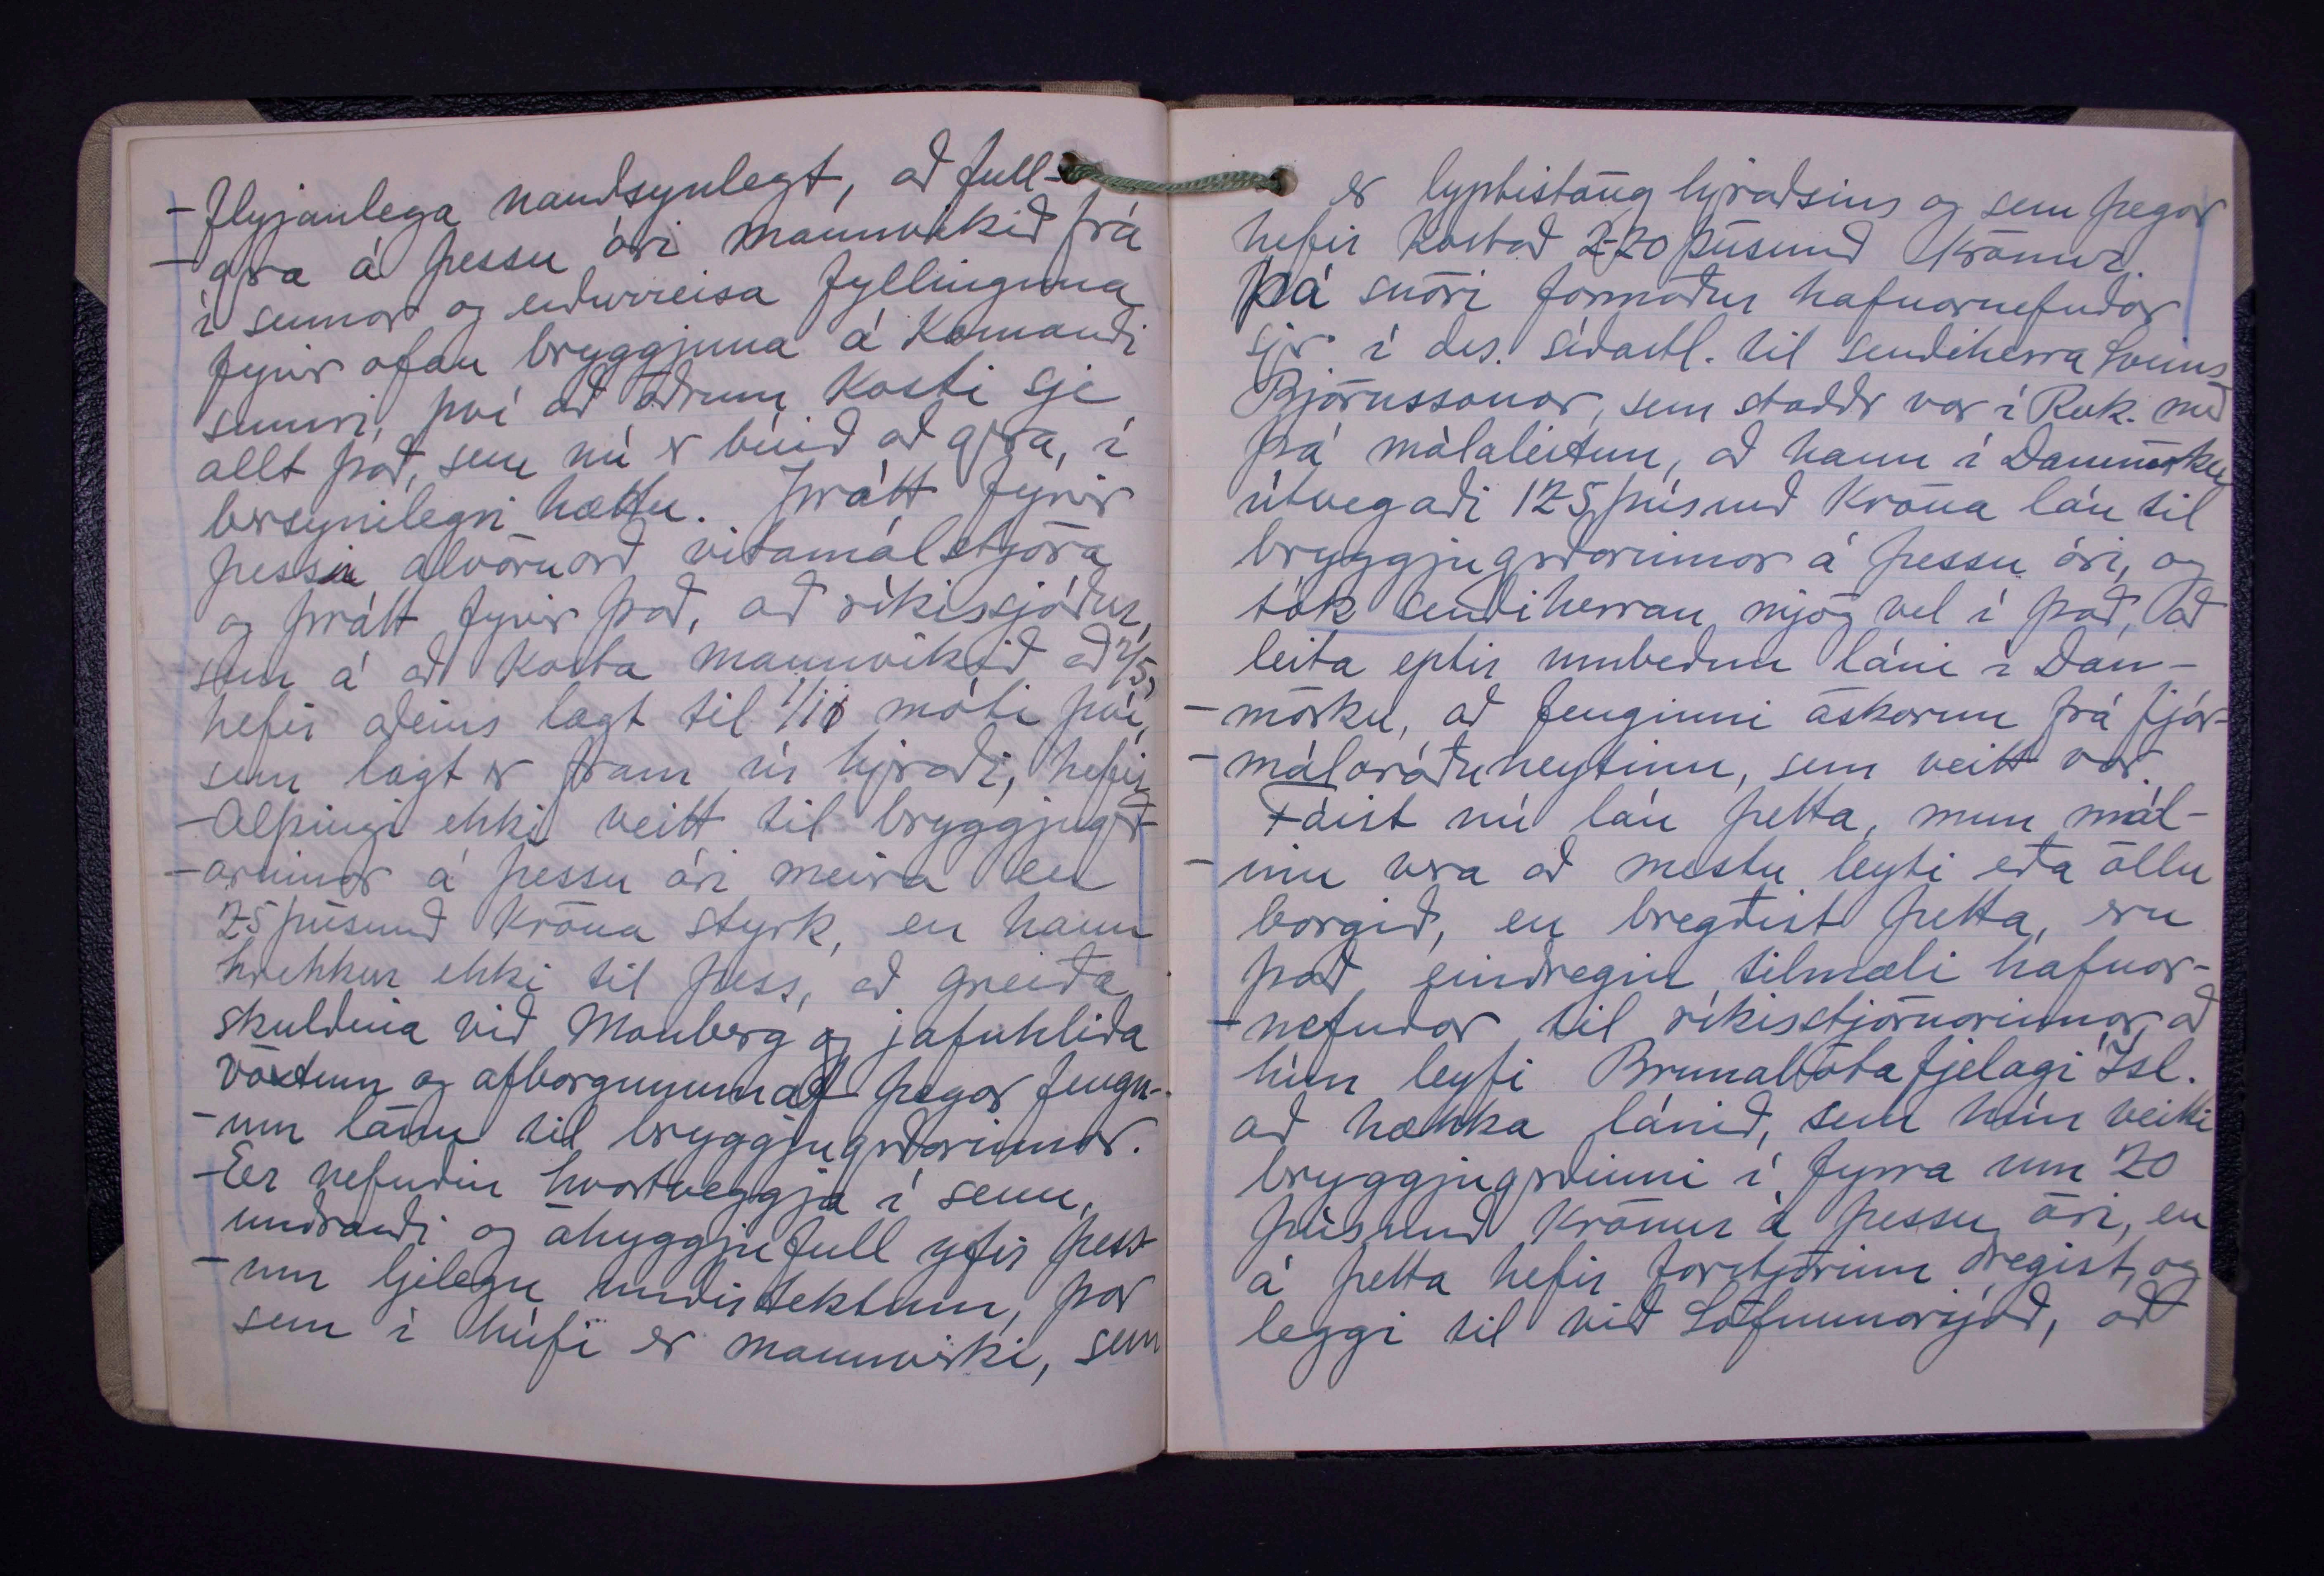 -flyjanlega nauðsynlegt, að full-
-gjra á þessu ári mannvikið frá
í sumar og endurreisa fyllinguna
fyrir ofan bryggjuna á komandi
sumri, því að öðrum kosti sje
allt það, sem nú er búið að gjra, í
bersynilegri hættu. Þrátt fyrir
þessi alvöruorð vitamálstjóra
og þrátt fyrir það, að ríkissjóður,
sem á að kosta mannvikið að 2/5,
hefir aðeins lagt til 1/11 móti því,
sem lagt er fram úr hjraði, hefir
-Alþingi ekki veitt til bryggjugjrð-
-arinnar á þessu ári meira en
25 þúsund króna styrk, en hann
hrekkur ekki til þess, að greiða
skuldina við Monberg og jafnhliða
vöxtum og afborgunum af þegar fengn-
-um lánum til bryggjugjrðarinnar.
-Er nefndin hvortveggja í senn,
undrandi og áhyggjufull yfir þess-
-um ljelegu undirtektum, þar
sem í húfi er mannvirki, sem
er lyptistöng hjraðsins og sem þegar
hefir kostað 220 þúsund krónur.
Þá snöri formaður hafnarnefndar
sjer í des. síðastl. til sendiherra Sveins
Björnssonar, sem staddr var í Rvk. með
þá málaleitun, að hann í Danmörku
útvegaði 125 þúsund króna lán til
bryggjugjrðarinnar á þessu ári, og
tók sendiherran mjög vel í það, að
leita eptir umbeðnu láni í Dan-
-mörku, að fenginni áskorun frá fjár-
-málaráðuneytinu, sem veitt var.
Fáist nú lán þetta, mun mál-
-inu vera að mestu leyti eða öllu
borgið, en bregðist þetta, eru
það eindregin tilmæli hafnar-
-nefndar til ríkisstjórnarinnar, að
hún leyfi Brunabótafjelagi Ísl.
að hækka lánið, sem hún veitti
bryggjugjrðinni í fyrra um 20
þúsund krónur á þessu ári, en
á þetta hefir forstjórinn dregist, og
leggi til við Söfnunarsjóð, að